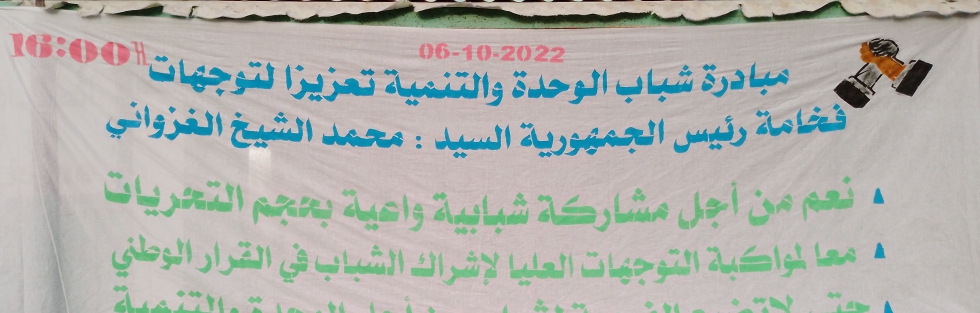 16:00H
06-10-2022
مبادرة شباب الوحدة والتنمية تعزيزا لتوجهات
فخامة رئيس الجمهورية السيد : محمد الشيخ الغزواني
نعم من أجل مشاركة شبابية واعية بحجم التحريات
معا لمواكبة التوجهات العليا لإشراك الشباب في القرار الوطني
حتى لا الوحدة والتنمية